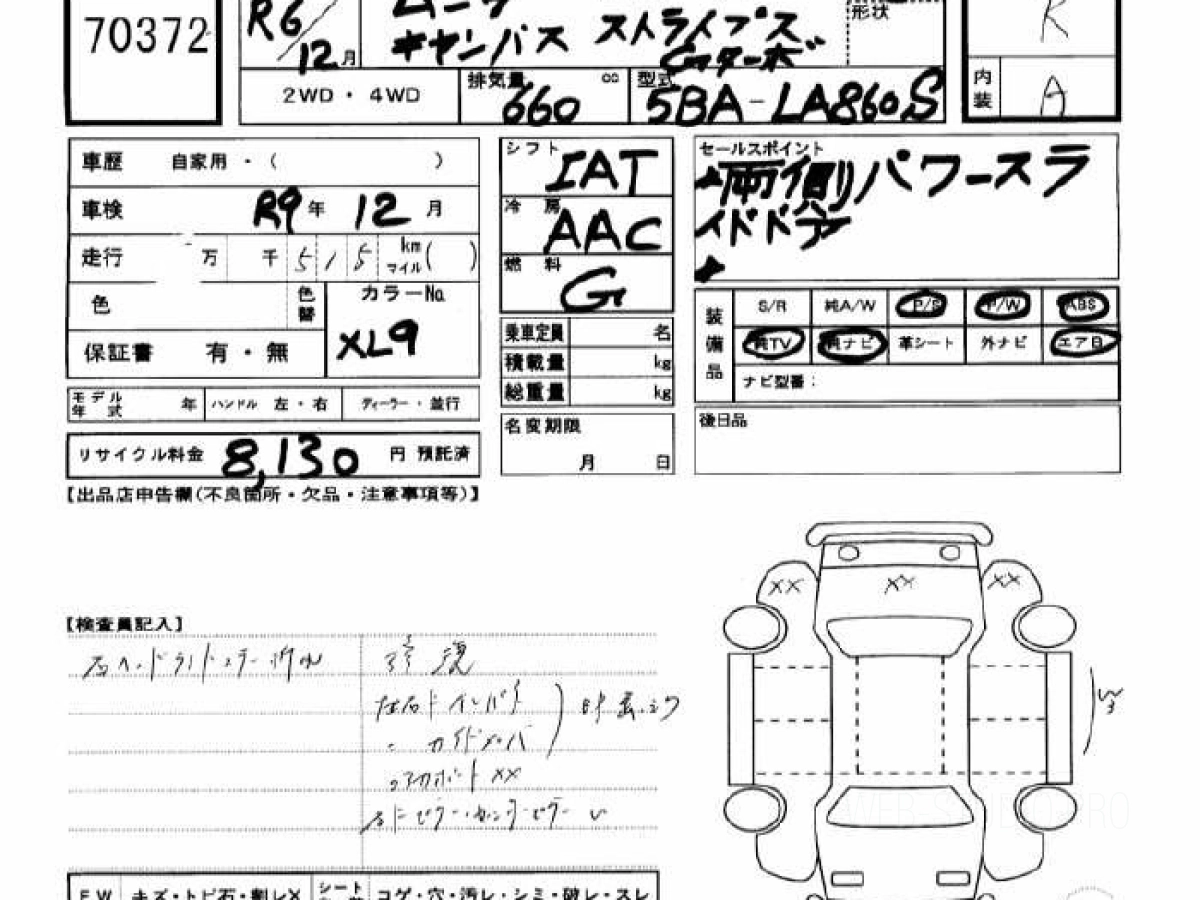 70372
R6/12月
ムーヴ
キャンバス ストライプス
Gターボ
形状
R
2WD・4WD
排気量 660 cc
型式 5BA-LA860S
内装 A
車歴 自家用・( )
車検 R9年 12月
走行 万 千 515 km マイル( )
色 色替 カラーNo XL9
保証書 有・無
モデル年式 年 ハンドル 左・右 ディーラー・並行
リサイクル料金 8,130 円 預託済
シフト IAT
冷房 AAC
燃料 G
乗車定員 名
積載量 kg
総重量 kg
名変期限 月 日
セールスポイント
両側パワースラ
イドドア
装備品
S/R 純A/W P/S P/W ABS
純TV 純ナビ 革シート 外ナビ エアB
ナビ型番:
後日品
【出品店申告欄(不良箇所・欠品・注意事項等)】
【検査員記入】
右ヘッドランドステー折れ
修復
左右Fインパネ
アッパーサポートXX
右Fピラー・センターピラー
XX XX XX
F W キズ・トビ石・割レX シート コゲ・穴・汚レ・シミ・破レ・スレ